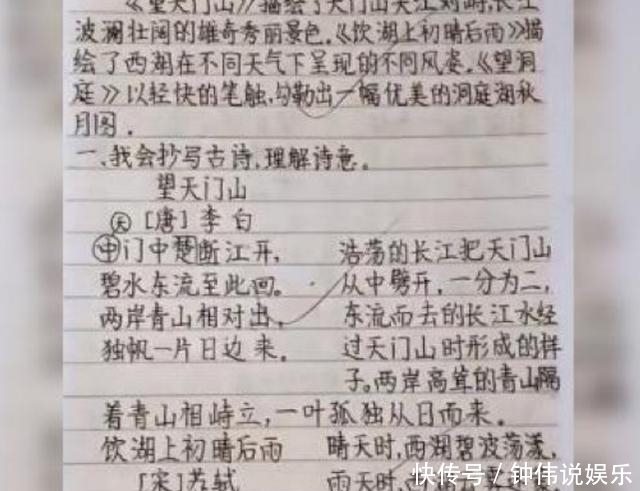 《望天门山》描绘了天门山夹江对峙,长江
波澜壮阔的雄奇秀丽景色。《饮湖上初晴后雨》描
绘了西湖在不同天气下呈现的不同风姿。《望洞
庭》以轻快的笔触,勾勒出一幅优美的洞庭湖秋
月图。
一、我会抄写古诗,理解诗意。
望天门山
天 [唐]李白
中门中楚断江开, 浩荡的长江把天门山
碧水东流至此回。 从中劈开,一分为二,
两岸青山相对出, 东流而去的长江水经
独帆一片日边来。 过天门山时形成的样
子。两岸高耸的青山隔
着青山相峙立,一叶孤独从日而来。
饮湖上初晴后雨 晴天时,西湖碧波荡漾,
[宋]苏轼 雨天时,
快传号/钟伟说娱乐